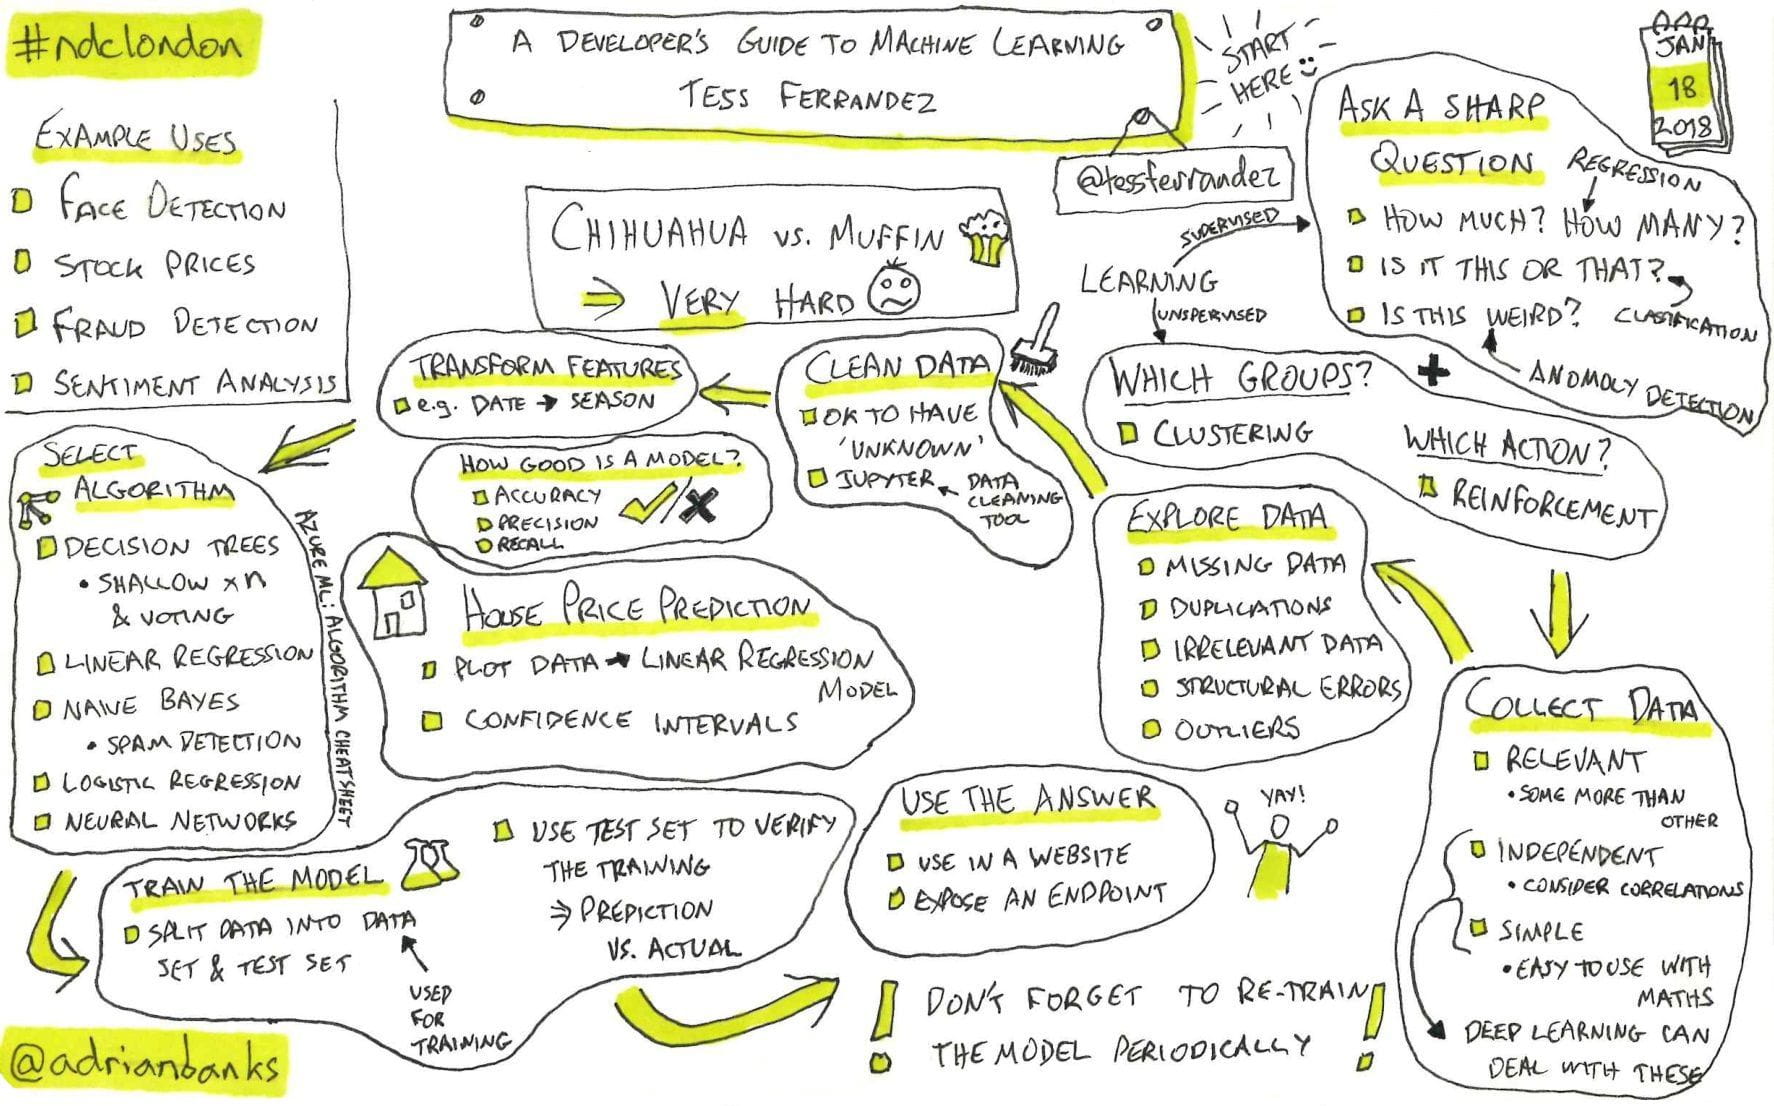 #ndclondon
A DEVELOPER'S GUIDE TO MACHINE LEARNING
TESS FERRANDEZ
@tessferrandez
START
HERE
JAN
18
2018
EXAMPLE USES
FACE DETECTION
STOCK PRICES
FRAUD DETECTION
SENTIMENT ANALYSIS
CHIHUAHUA VS. MUFFIN
VERY HARD
LEARNING
SUPERVISED
UNSPERVISED
ASK A SHARP
QUESTION
REGRESSION
HOW MUCH? HOW MANY?
IS IT THIS OR THAT?
CLASSIFICATION
IS THIS WEIRD?
ANOMOLY DETECTION
WHICH GROUPS?
CLUSTERING
+
WHICH ACTION?
REINFORCEMENT
COLLECT DATA
RELEVANT
• SOME MORE THAN
OTHER
INDEPENDENT
• CONSIDER CORRELATIONS
SIMPLE
• EASY TO USE WITH
MATHS
DEEP LEARNING CAN
DEAL WITH THESE
EXPLORE DATA
MISSING DATA
DUPLICATIONS
IRRELEVANT DATA
STRUCTURAL ERRORS
OUTLIERS
CLEAN DATA
OK TO HAVE
'UNKNOWN'
JUPYTER
DATA
CLEANING
TOOL
TRANSFORM FEATURES
e.g. DATE → SEASON
HOW GOOD IS A MODEL?
ACCURACY
PRECISION
RECALL
HOUSE PRICE PREDICTION
PLOT DATA → LINEAR REGRESSION
MODEL
CONFIDENCE INTERVALS
SELECT
ALGORITHM
DECISION TREES
• SHALLOW x n
& VOTING
LINEAR REGRESSION
NAIVE BAYES
• SPAM DETECTION
LOGISTIC REGRESSION
NEURAL NETWORKS
AZURE ML: ALGORITHM CHEATSHEET
TRAIN THE MODEL
SPLIT DATA INTO DATA
SET & TEST SET
USED
FOR
TRAINING
USE TEST SET TO VERIFY
THE TRAINING
⇒ PREDICTION
VS. ACTUAL
USE THE ANSWER
USE IN A WEBSITE
EXPOSE AN ENDPOINT
YAY!
! DON'T FORGET TO RE-TRAIN !
THE MODEL PERIODICALLY
@adrianbanks